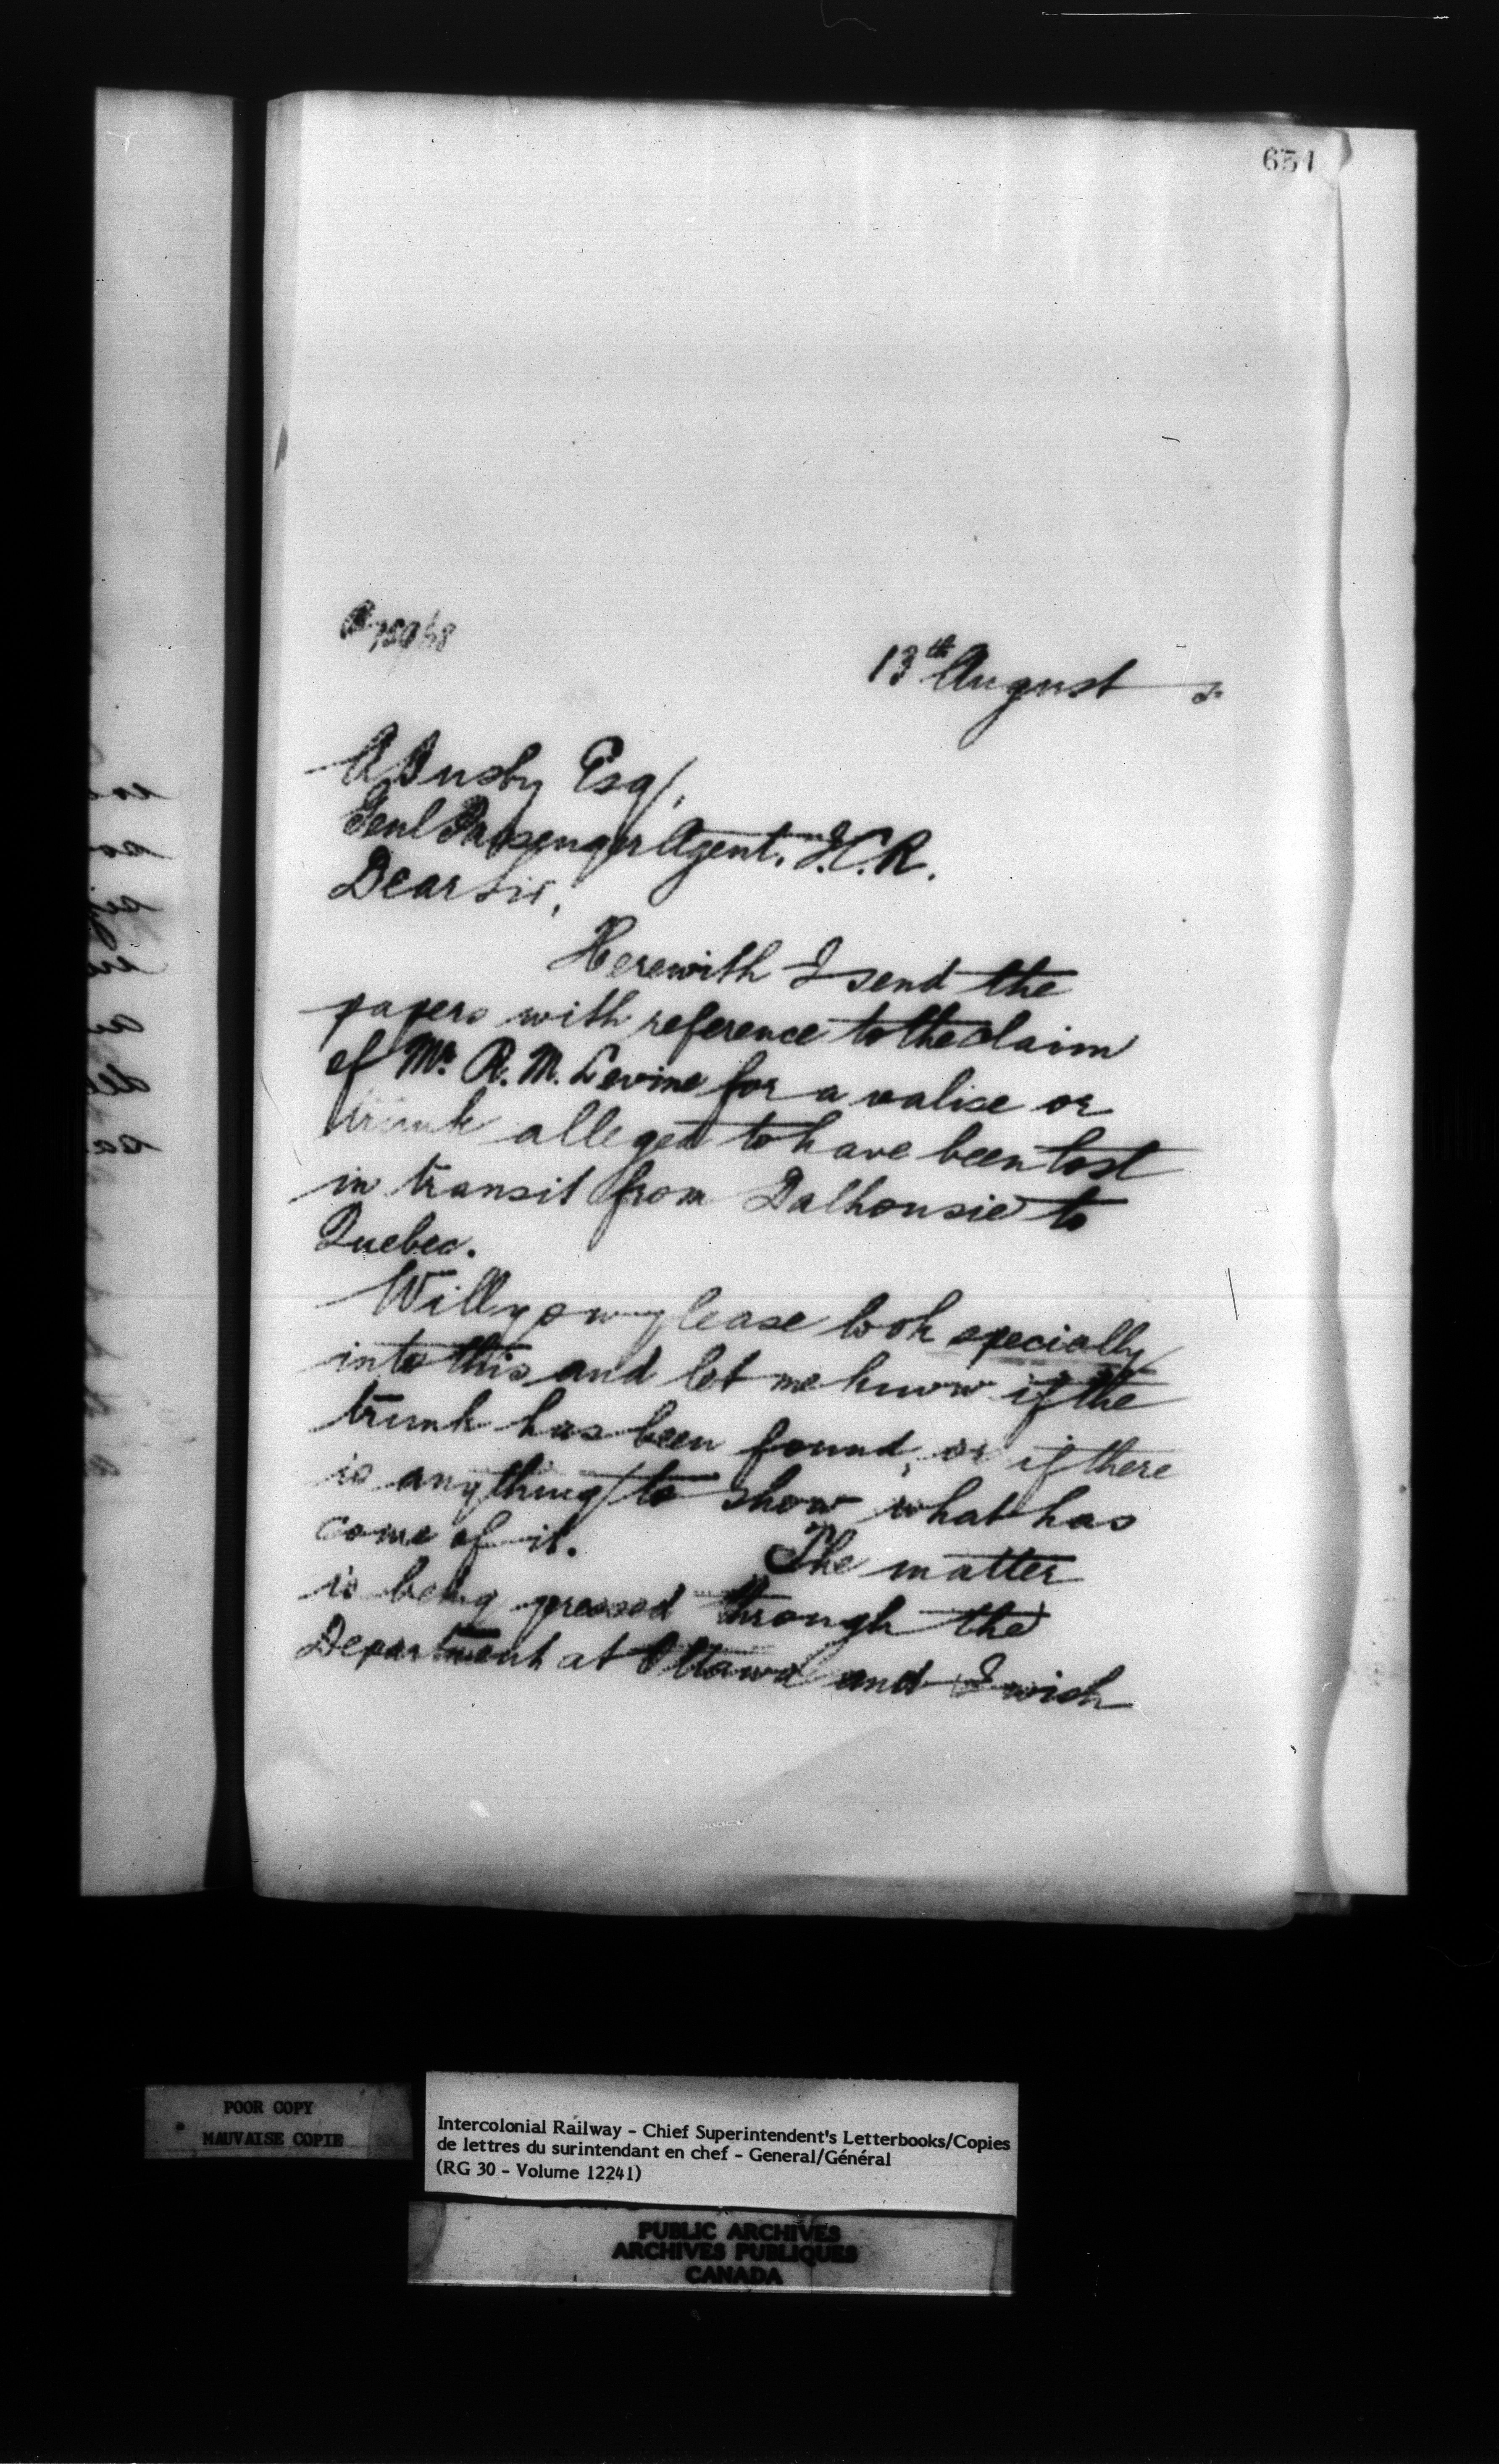 654
13th August
A Busby Esq/.
Genl Passenger Agent. I.C.R.
Dear Sir,
Herewith I send the
papers with reference to the claim
of Mr. R. M. Levine for a valise or
trunk alleged to have been lost
in transit from Dalhousie to
Quebec.
Will you please look specially
into this and let me know if the
trunk has been found, or if there
is anything to show what has
come of it.
The matter
is being pressed through the
Department at Ottawa and I wish
POOR COPY
MAUVAISE COPIE
Intercolonial Railway - Chief Superintendent's Letterbooks/Copies
de lettres du surintendant en chef - General/Général
(RG 30 - Volume 12241)
PUBLIC ARCHIVES
ARCHIVES PUBLIQUES
CANADA